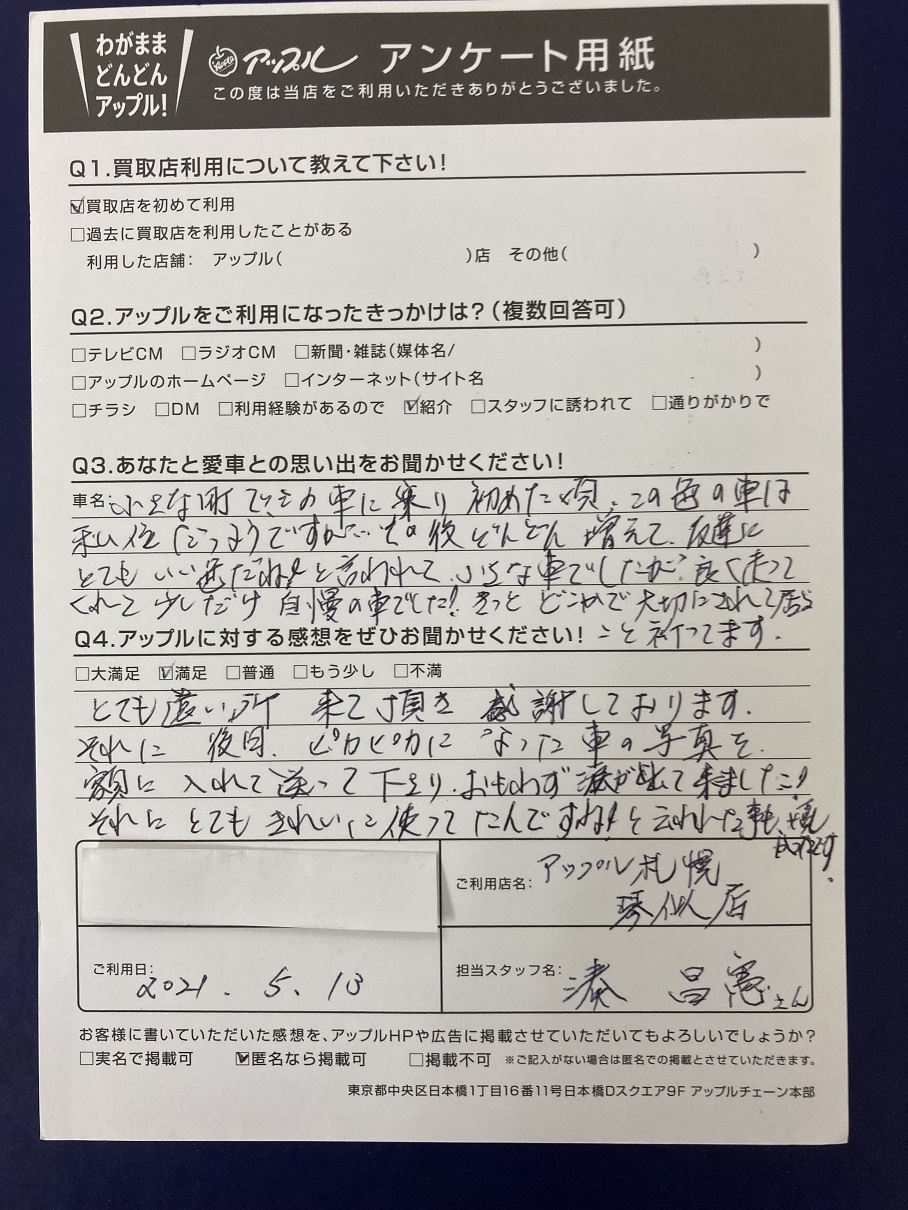 わがまま
どんどん
アップル!
Apple アップル アンケート用紙
この度は当店をご利用いただきありがとうございました。
Q1.買取店利用について教えて下さい!
☑買取店を初めて利用
□過去に買取店を利用したことがある
利用した店舗: アップル( )店 その他( )
Q2.アップルをご利用になったきっかけは?(複数回答可)
□テレビCM □ラジオCM □新聞・雑誌(媒体名/ )
□アップルのホームページ □インターネット(サイト名 )
□チラシ □DM □利用経験があるので ☑紹介 □スタッフに誘われて □通りがかりで
Q3.あなたと愛車との思い出をお聞かせください!
車名: 小さな町でこの車に乗り初めた頃、この色の車は
私位だったようですが…その後どんどん増えて、友達に
とてもいい色だね!と言われて、な車でしたが、良く走って
くれて少しだけ自慢の車でした!きっとどこかで大切にされて居る
こと祈ってます.
Q4.アップルに対する感想をぜひお聞かせください!
□大満足 ☑満足 □普通 □もう少し □不満
とても遠い所 来て頂き 感謝しております.
それに 後日、ピカピカに なった車の写真を、
額に入れて送って下さり、おもわず涙が出て来ました!
それにとてもきれいに使ってたんですね!と云われた事も、嬉
ご利用店名: アップル札幌
琴似店
ご利用日: 2021. 5. 13
担当スタッフ名: 湊 昌憲さん
お客様に書いていただいた感想を、アップルHPや広告に掲載させていただいてもよろしいでしょうか?
□実名で掲載可 ☑匿名なら掲載可 □掲載不可 ※ご記入がない場合は匿名での掲載とさせていただきます。
東京都中央区日本橋1丁目16番11号日本橋Dスクエア9F アップルチェーン本部